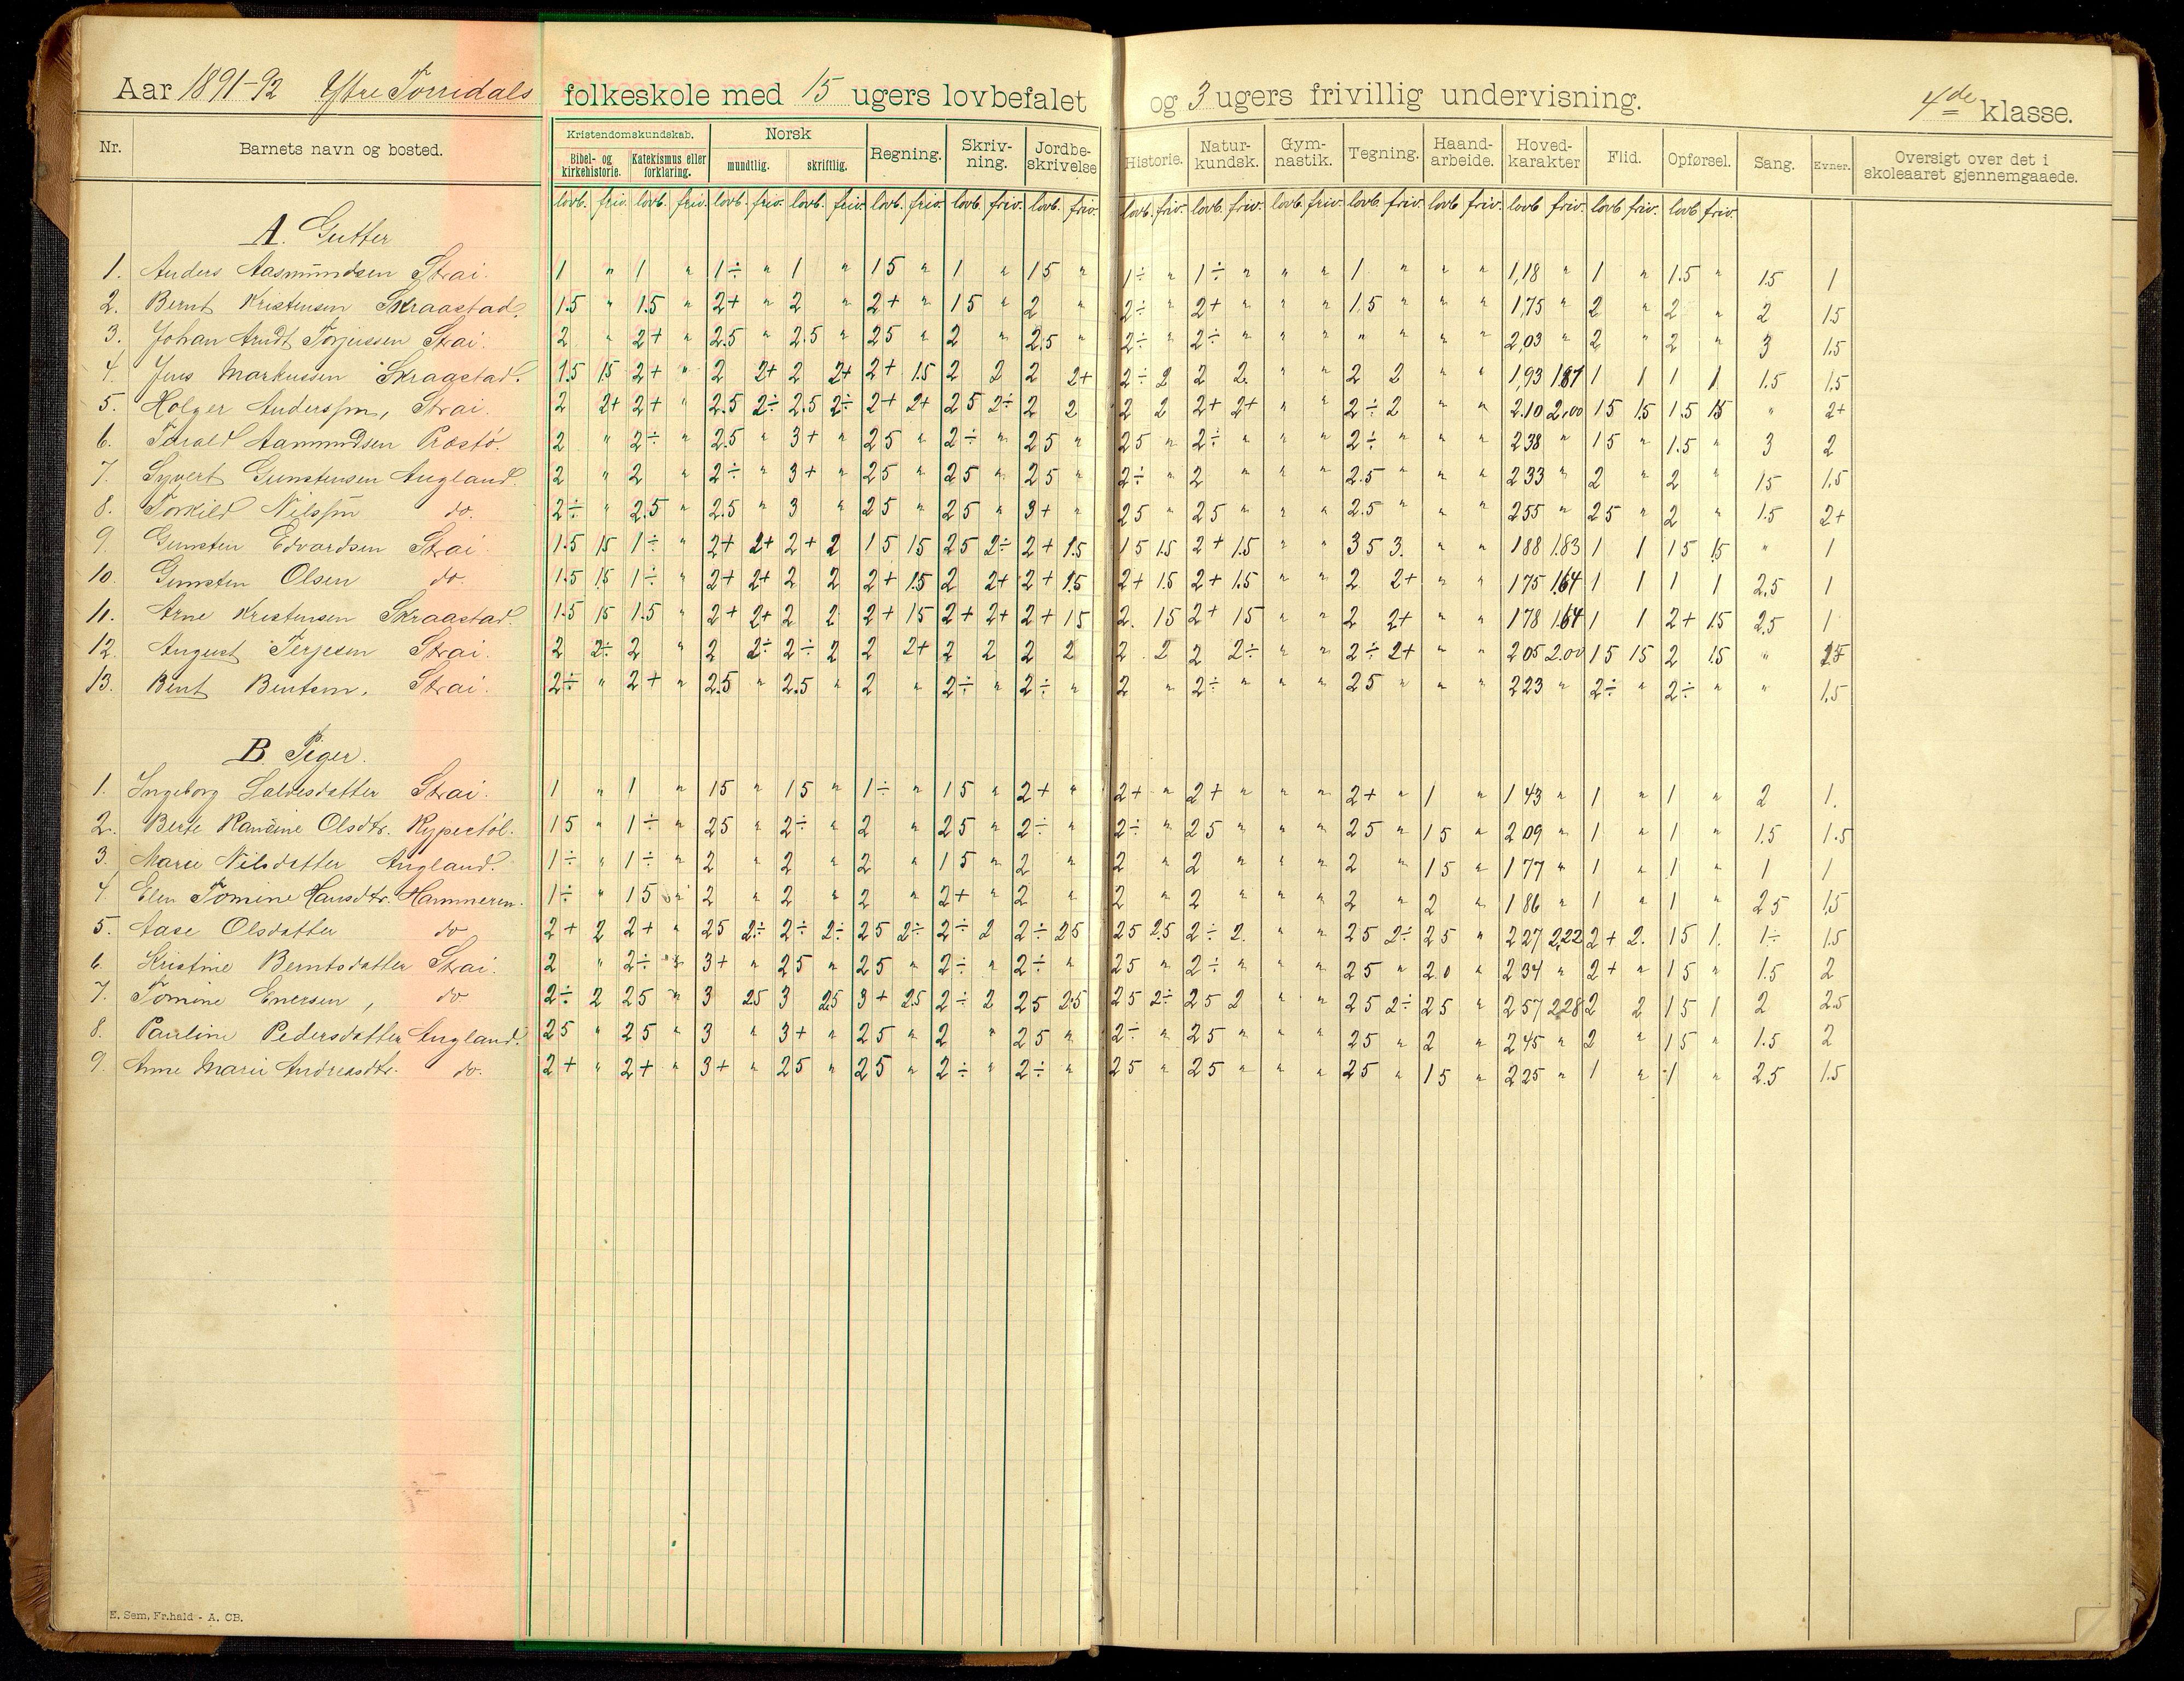 Aar 1891-92 Ytre Torridals folkeskole med 15 ugers lovbefalet og 3 ugers frivillig undervisning. 4de klasse.
Nr. Barnets navn og bosted. Kristendomskundskab. Norsk Regning. Skriv-ning. Jordbe-skrivelse Historie. Natur-kundsk. Gym-nastik. Tegning. Haand-arbeide. Hoved-karakter Flid. Opførsel. Sang. Evner. Oversigt over det i skoleaaret gjennemgaaede.
Bibel- og kirkehistorie. Katekismus eller forklaring. mundtlig. skriftlig.
lovb. friv. lovb. friv. lovb. friv. lovb. friv. lovb. friv. lovb. friv. lovb. friv. lovb. friv. lovb. friv. lovb. friv. lovb. friv. lovb friv. lovb friv. lovb friv. lovb friv.
A. Gutter
1. Anders Aasmundsen Strai. 1 " 1 " 1÷ " 1 " 15 " 1 " 15 " 1÷ " 1÷ " " " 1 " " " 1,18 " 1 " 1.5 " 15 1
2. Bernt Kristensen Skraastad. 1.5 " 1.5 " 2+ " 2 " 2+ " 15 " 2 " 2÷ " 2+ " " " 1.5 " " " 1,75 " 2 " 2 " 2 15
3. Johan Arndt Torjussen Strai. 2 " 2+ " 2.5 " 2.5 " 25 " 2 " 2.5 " 2÷ " 2÷ " " " " " " " 2,03 " 2 " 2 " 3 1.5
4. Jens Markussen Skraastad. 1.5 15 2+ " 2 2+ 2 2+ 2+ 1.5 2 2 2 2+ 2÷ 2 2 2. " " 2 2 " " 1,93 1.87 1 1 1 1 1.5 1.5
5. Holger Anderssøn, Strai. 2 2+ 2+ " 2.5 2÷ 2.5 2÷ 2+ 2+ 25 2÷ 2 2 2 2 2+ 2+ " " 2÷ 2 " " 2.10 2,00 15 15 1.5 15 " 2+
6. Aamundsen 2 " 2÷ " 25 " 3+ " 25 " 2÷ " 25 " 25 " 2÷ " " " 2÷ " " " 238 " 15 " 1.5 " 3 2
7. Syvert Gunstensen Augland. 2 " 2 " 2÷ " 3+ " 25 " 25 " 25 " 2÷ " 2 " " " 2.5 " " " 233 " 2 " 2 " 15 1.5
8. Torkild Nilssøn do. 2÷ " 2.5 " 2.5 " 3 " 25 " 25 " 3+ " 25 " 25 " " " 2.5 " " " 255 " 25 " 2 " 1.5 2+
9. Gunsten Edvardsen Strai 1.5 15 1÷ " 2+ 2+ 2+ 2 15 15 25 2÷ 2+ 1.5 15 15 2+ 1.5 " " 35 3. " " 188 1.83 1 1 15 15 " 1
10. Gunsten Olsen do. 1.5 15 1÷ " 2+ 2+ 2 2 2+ 1.5 2 2+ 2+ 1.5 2+ 1.5 2+ 1.5 " " 2 2+ " " 175 1.64 1 1 1 1 2.5 1
11. Arne Kristensen Skraastad. 1.5 15 1.5 " 2+ 2+ 2 2 2+ 15 2+ 2+ 2+ 15 2. 15 2+ 15 " " 2 2+ " " 178 1.64 1 1 2+ 15 2.5 1
12. August Terjesen Strai. 2 2÷ 2 " 2 2÷ 2÷ 2 2 2+ 2 2 2 2 2 2 2 2÷ " " 2÷ 2+ " " 205 2.00 15 15 2 15 "
13. Bent Bentsen. Strai. 2÷ " 2+ " 2.5 " 2.5 " 2 " 2÷ " 2÷ " 2 " 2÷ " " " 25 " " " 223 " 2÷ " 2÷ " " 1.5
B. Piger.
1. Ingeborg Salvesdatter Strai. 1 " 1 " 15 " 15 " 1÷ " 15 " 2+ " 2+ " 2+ " " " 2+ " 1 " 1 43 " 1 " 1 " 2 1.
2. Berte Olsdtr. 15 " 1÷ " 25 " 2÷ " 2 " 25 " 2÷ " 2÷ " 25 " " " 25 " 15 " 209 " 1 " 1 " 1.5 1.5
3. Marie Nilsdatter Augland. 1÷ " 1÷ " 2 " 2 " 2 " 15 " 2 " 2 " 2 " " " 2 " 15 " 177 " 1 " 1 " 1 1
4. Elen Tomine Hansdtr. Hammeren. 1÷ " 15 " 2 " 2 " 2 " 2+ " 2 " 2 " 2 " " " 2 " 2 " 186 " 1 " 1 " 25 1.5
5. Aase Olsdatter do 2+ 2 2+ " 25 2÷ 2÷ 2÷ 25 2÷ 2÷ 2 2÷ 25 25 2.5 2÷ 2. " " 25 2÷ 25 " 227 2,22 2+ 2. 15 1. 1÷ 1.5
6. Kristine Berntsdatter Strai. 2 " 2÷ " 3+ " 25 " 25 " 2÷ " 2÷ " 25 " 2÷ " " " 25 " 2.0 " 234 " 2+ " 15 " 1.5 2
7. Tomine Enersen, do 2÷ 2 25 " 3 25 3 25 3+ 2.5 2÷ 2 25 2.5 25 2÷ 25 2 " " 25 2÷ 25 " 257 2,28 2 2 15 1 2 25
8. Pauline Pedersdatter Augland. 25 " 25 " 3 " 3+ " 25 " 2 " 25 " 2÷ " 25 " " " 25 " 2 " 245 " 2 " 15 " 1.5 2
9. Anne Marie Andreasdtr. do. 2+ " 2+ " 3+ " 25 " 25 " 2÷ " 2÷ " 25 " 25 " " " 25 " 15 " 225 " 1 " 1 " 2.5 1.5
E. Sem, Fr.hald - A. CB.